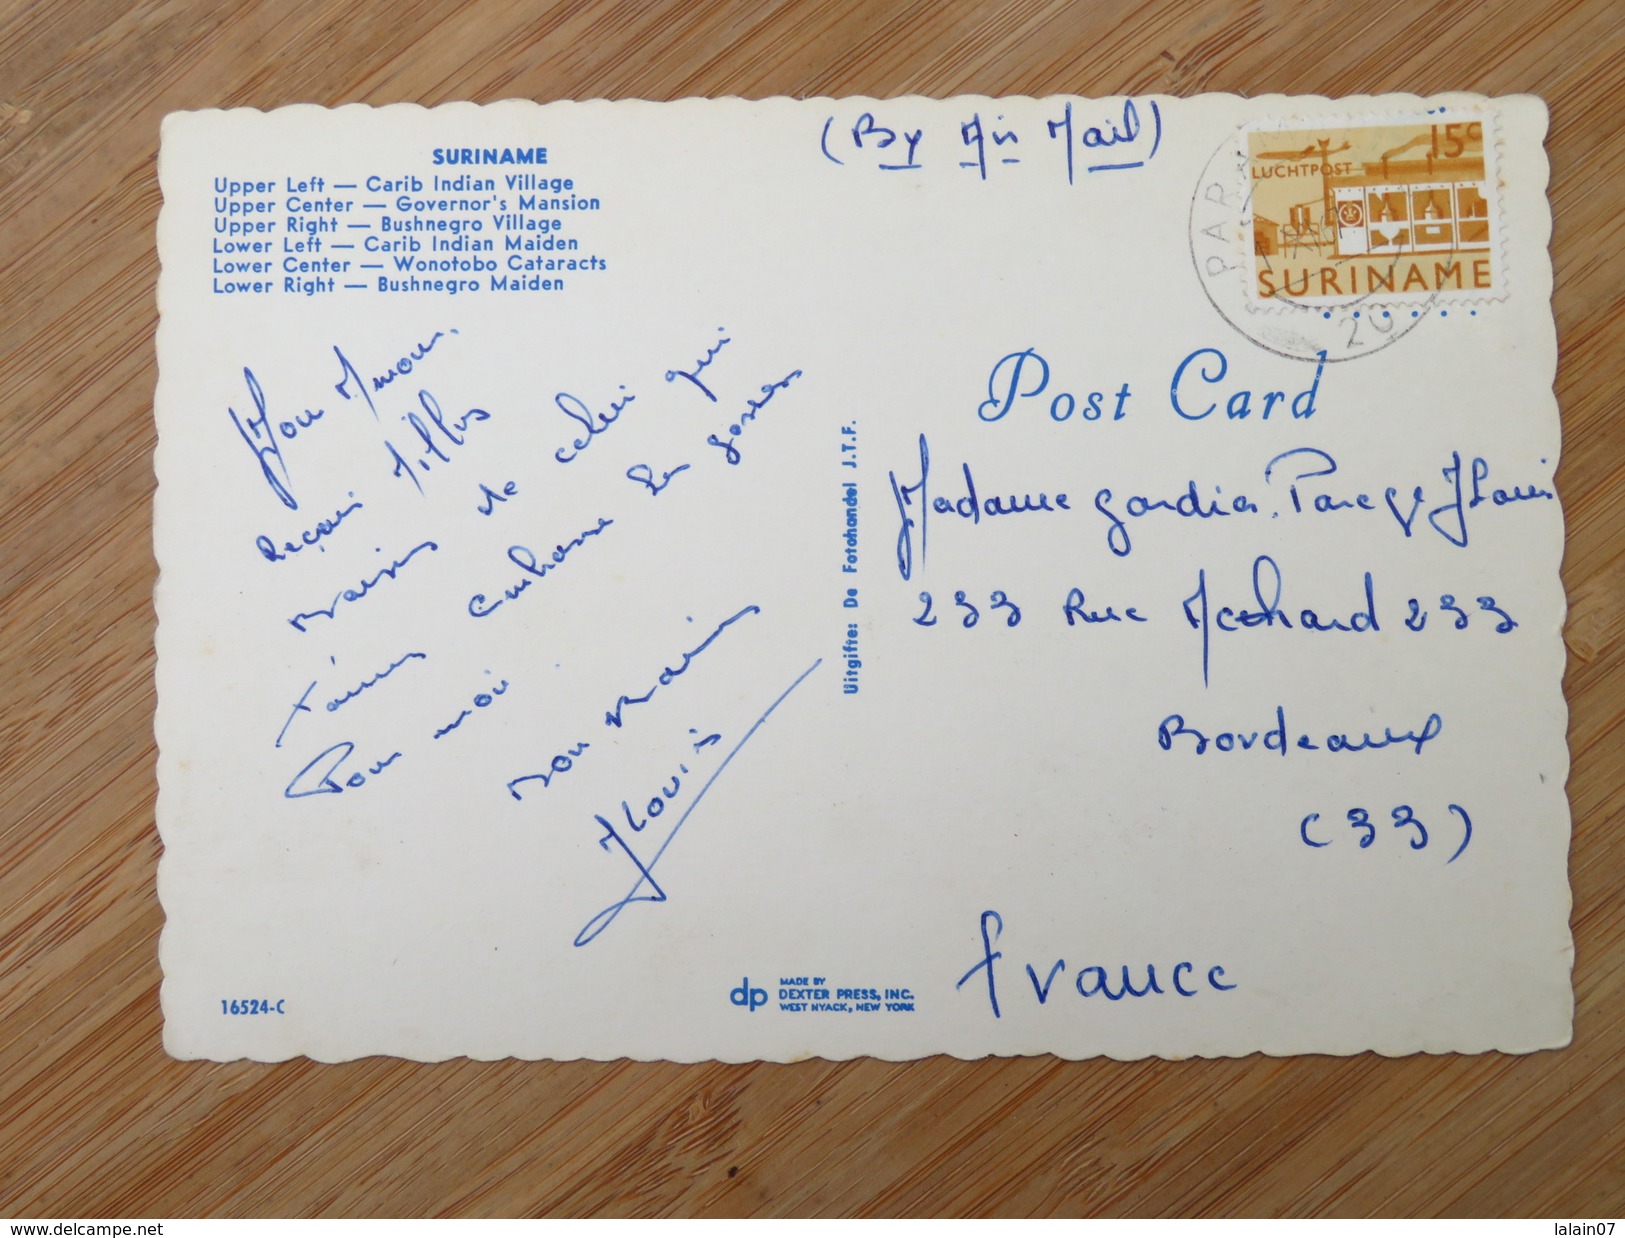 SURINAME
Upper Left — Carib Indian Village
Upper Center — Governor's Mansion
Upper Right — Bushnegro Village
Lower Left — Carib Indian Maiden
Lower Center — Wonotobo Cataracts
Lower Right — Bushnegro Maiden
Mon Amour.
Reçois Milles
Baisers de celui qui
t'aimes embrasse les gosses
Pour moi.
Ton Mari
JLouis
16524-C
Uitgifte: De Fotohandel J.T.F.
dp MADE BY
DEXTER PRESS, INC.
WEST NYACK, NEW YORK
(By Air Mail)
15c
LUCHTPOST
SURINAME
PARA
20
Post Card
Madame Gardia JLouis
233 Rue Achard 233
Bordeaux
(33)
France
www.delcampe.net
lalain07